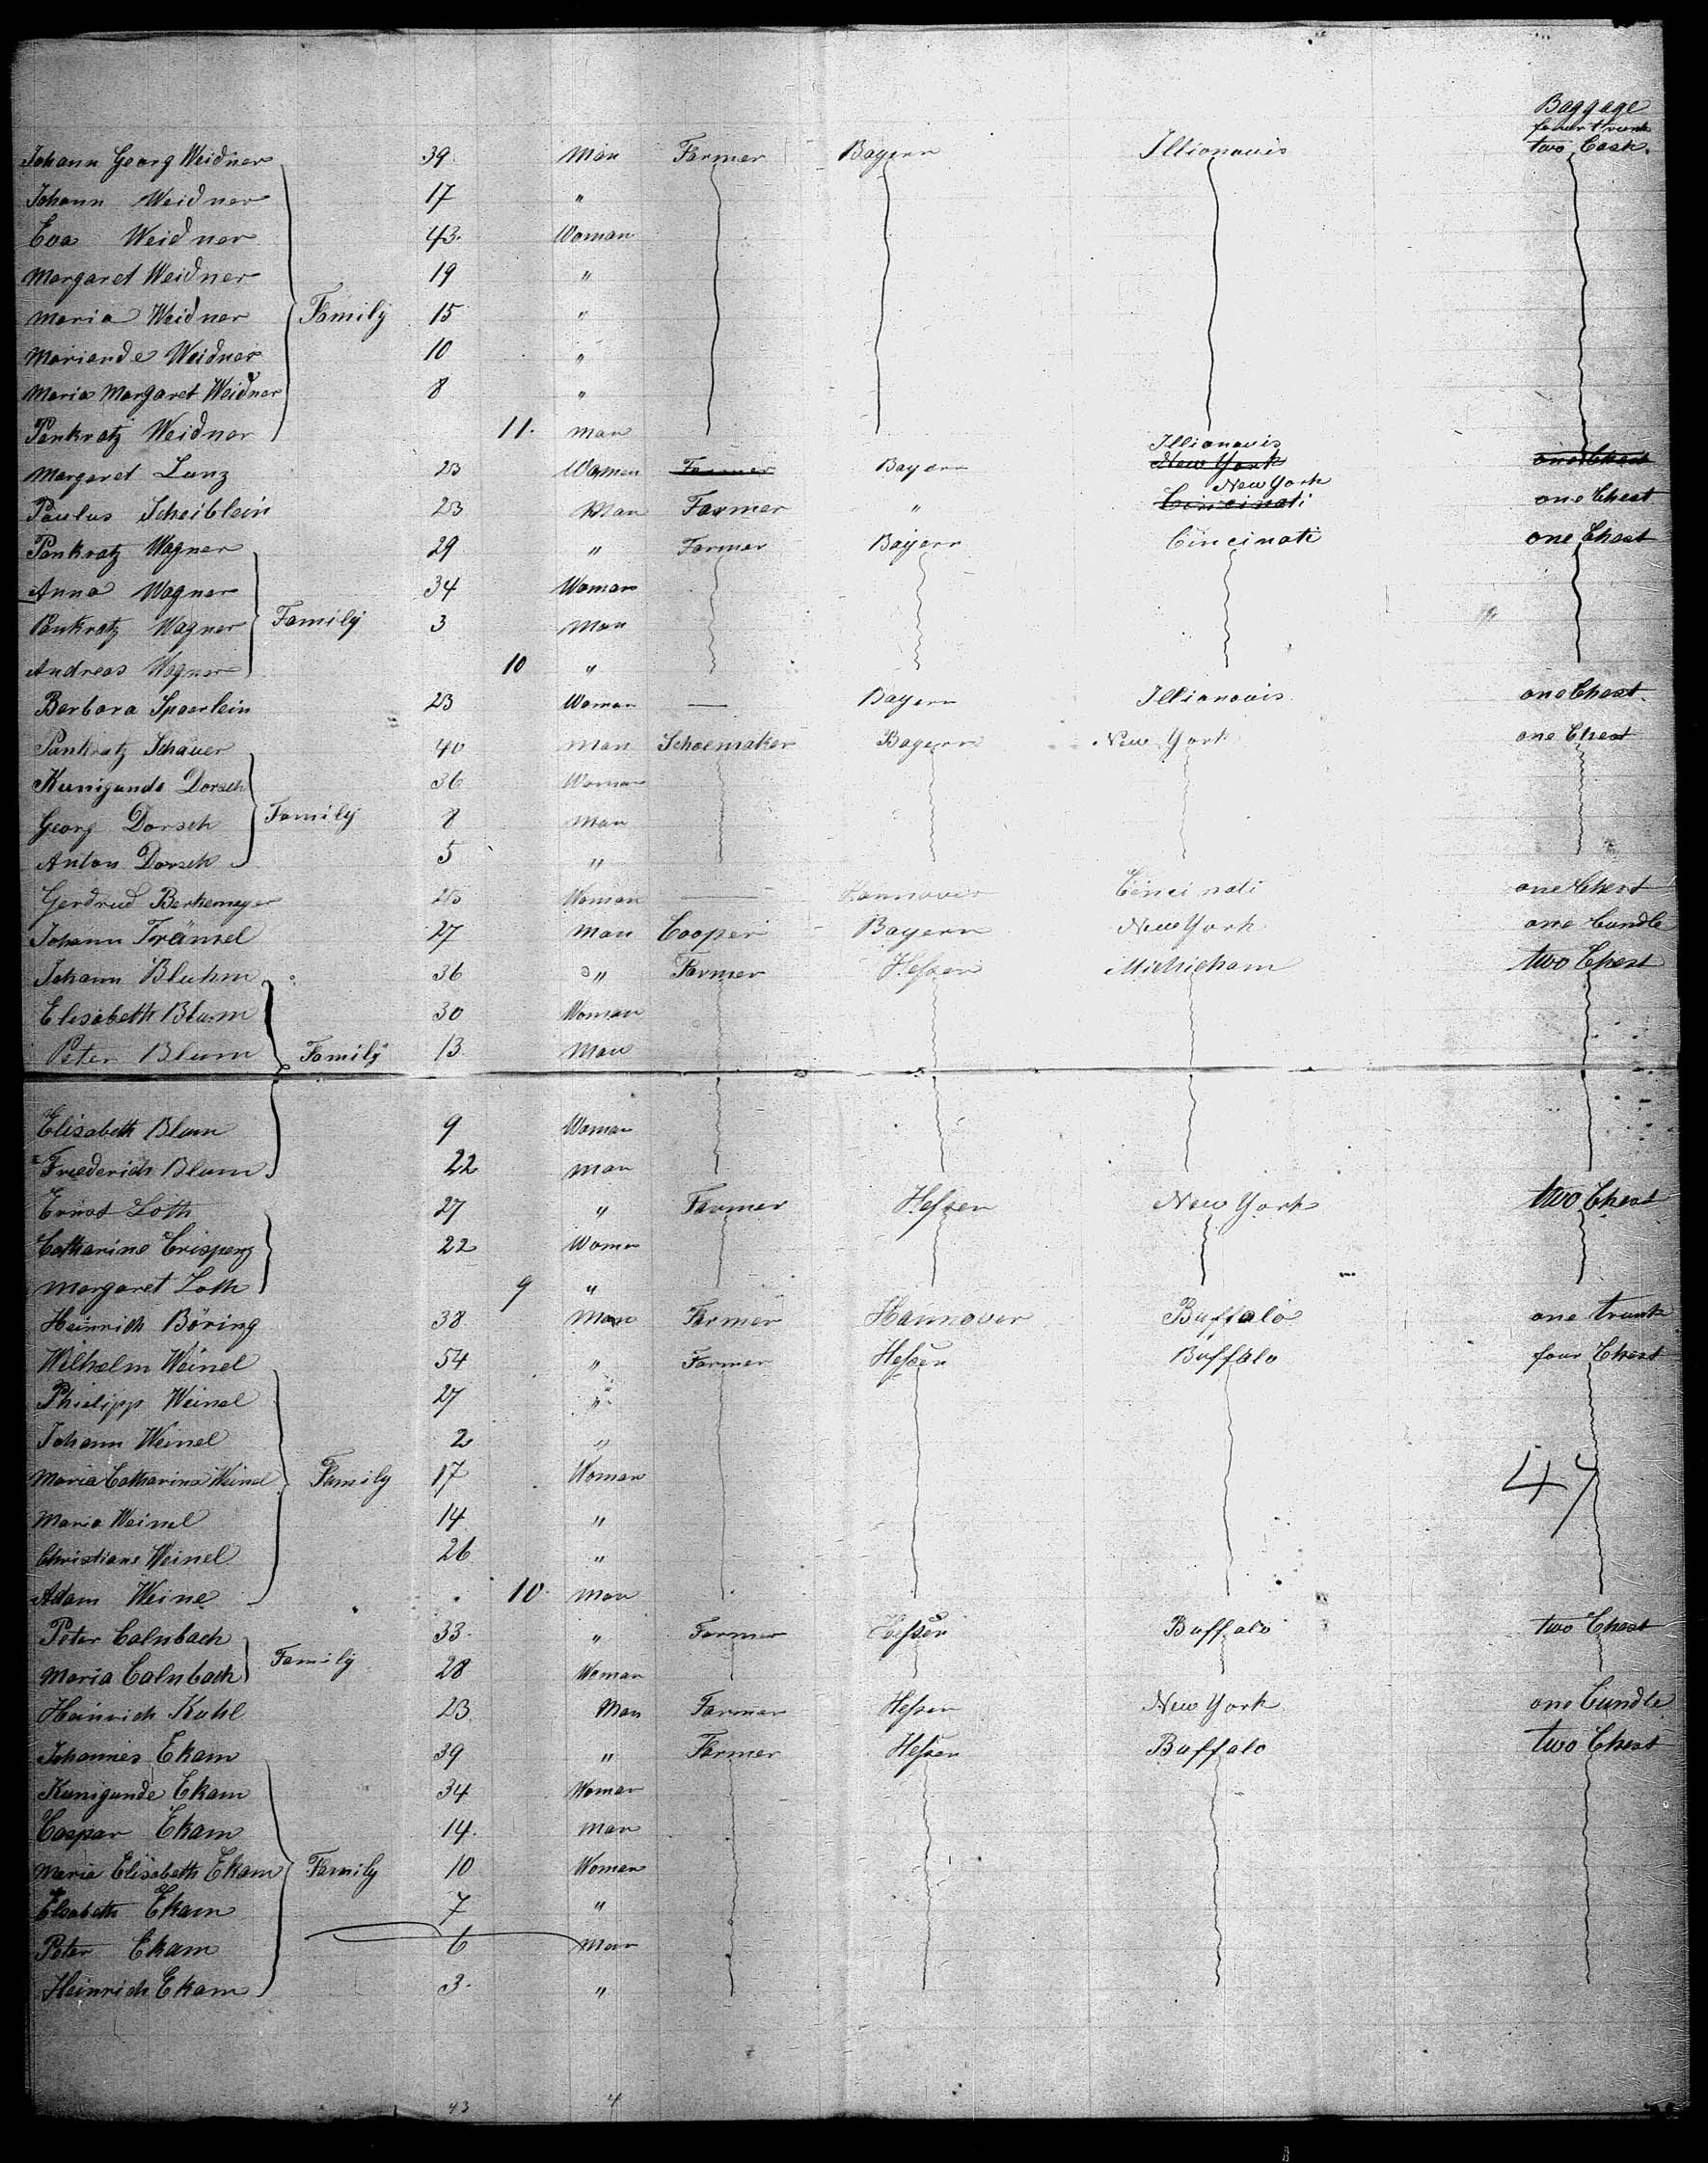 Baggage
four trunk
Johann Georg Weidner 39 Man Farmer Bayern Illionouis two Cask.
Johann Weidner 17 "
Eva Weidner 43. Woman
Margaret Weidner 19 "
Maria Weidner Family 15 "
Weidner 10 "
Maria Margaret Weidner 8 "
Pankratz Weidner 11. Man
Illionouis
Margaret Lunz 23 Woman Farmer Bayern New York one Chest
New York
Paulus Scheiblein 23 Man Farmer " Cincinati one Chest
Pankratz Wagner 29 " Farmer Bayern Cincinati one Chest
Anna Wagner 34 Woman
Pankratz Wagner Family 3 Man
Andreas Wagner 10 "
Barbara Spoerlein 23 Woman — Bayern Illionouis one Chest.
Pankratz Schauer 40 Man Schoemaker Bayern New York one Chest
Kunigunde Dorsch 36 Woman
Georg Dorsch Family 8 Man
Anton Dorsch 5 "
Gerdrud Berkemeyer Woman — Hannover Cincinati one Chest
Johann Tränsel 27 Man Cooper Bayern New York one bundle
Johann Bluhm 36 " Farmer Hessen Michicham two Chest
Elisabeth Blum 30 Woman
Peter Blum Family 13 Man
Elisabeth Blum 9 Woman
Friederich Blum 22 Man
Loth 27 " Farmer Hessen New York two Chest
Catharine Crispenz 22 Woman
Margaret Loth 9 "
Heinrich Böring 38. Man Farmer Hannover Buffalo one trunk
Wilhelm Weinel 54 " Farmer Hessen Buffalo four Chest
Phielipp Weinel 27 "
Johann Weinel 2 "
Maria Catharina Weinel Family 17 Woman 47
Maria Weinel 14 "
Christiane Weinel 26 "
Adam Weine 10. Man
Peter Calnbach 33. " Farmer Hessen Buffalo two Chest
Maria Calnbach Family 28 Woman
Heinrich Kuhl 23 Man Farmer Hessen New York one bundle
Johannes Ekam 39 " Farmer Hessen Buffalo two Chest
Kunigunde Ekam 34 Woman
Caspar Ekam 14. Man
Maria Elisabeth Ekam Family 10 Woman
Elsabeth Ekam 7 "
Peter Ekam 6 Man
Heinrich Ekam 3. "
43 4